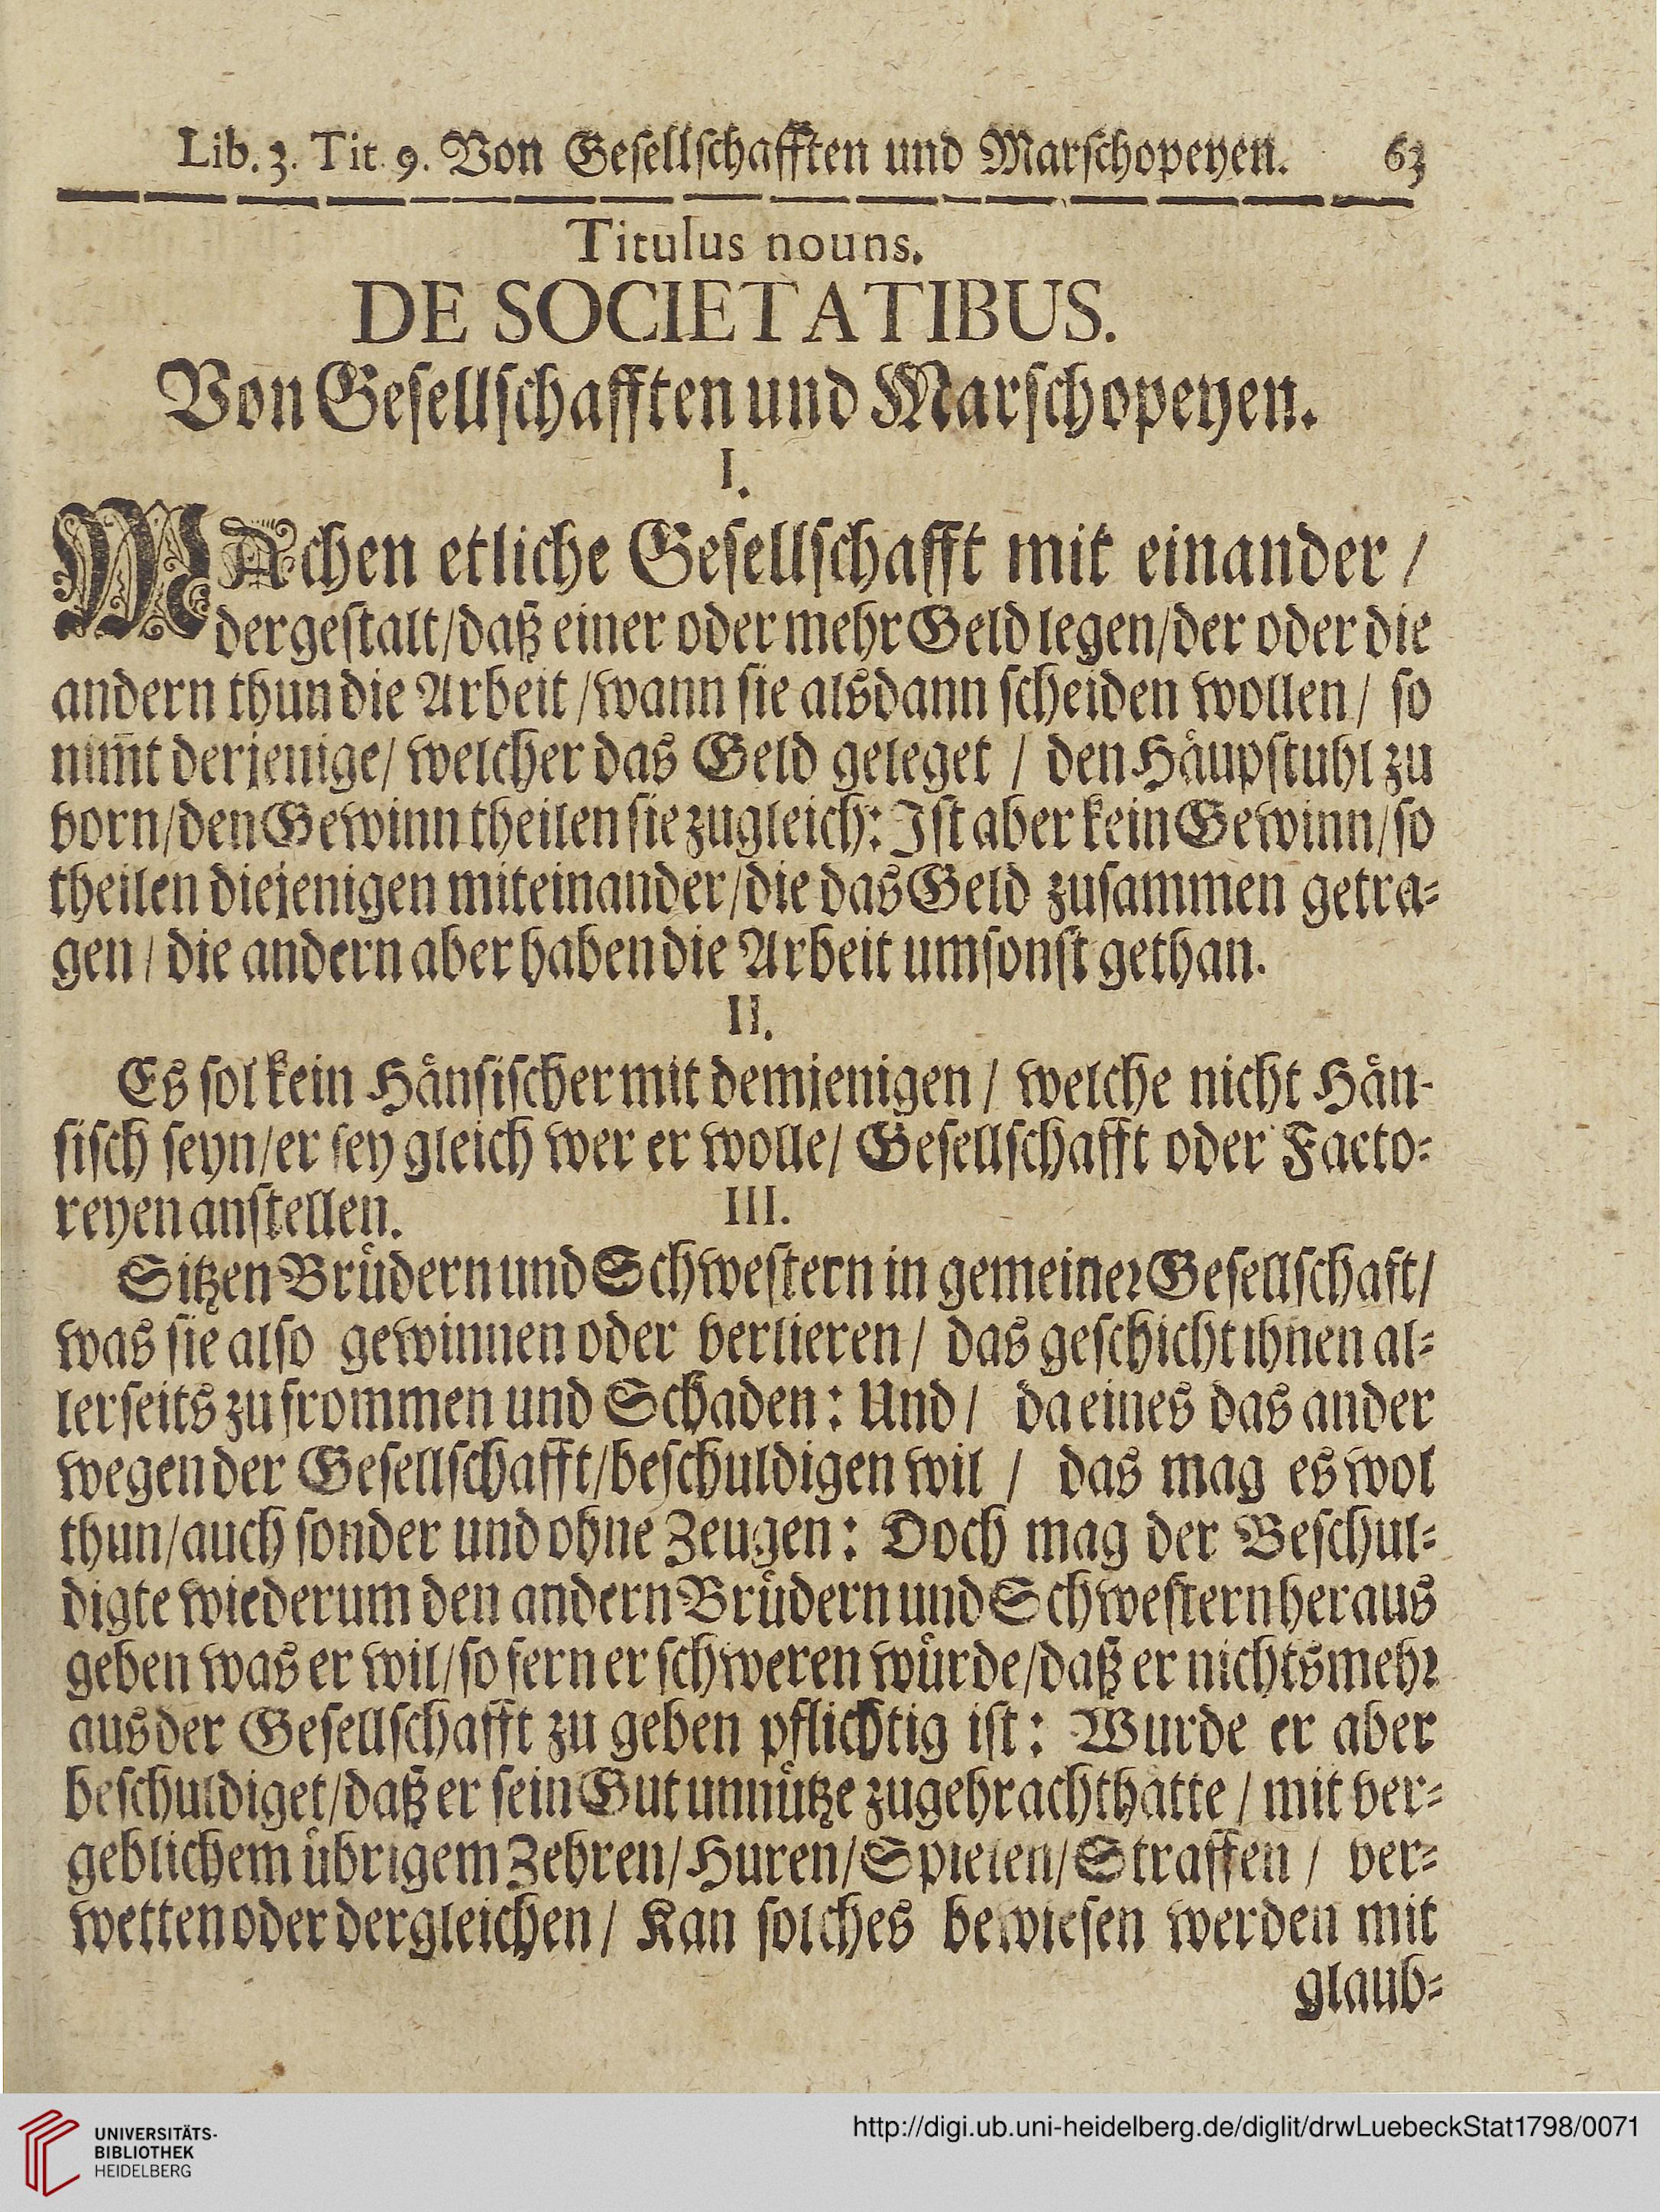 Lib. 3. Tit. 9. Von Gesellschafften und Marschopeyen. 63
Titulus nouns.
DE SOCIETATIBUS.
Von Gesellschafften und Marschopeyen.
I.
MAchen etliche Gesellschafft mit einander /
dergestalt / daß einer oder mehr Geld legen / der oder die
andern thun die Arbeit / wann sie alsdann scheiden wollen / so
nim̃t derjenige / welcher das Geld geleget / den Haͤupstuhl zu
vorn / den Gewinn theilen sie zugleich: Ist aber kein Gewinn / so
theilen diejenigen miteinander / die das Geld zusammen getra-
gen / die andern aber haben die Arbeit umsonst gethan.
II.
Es sol kein Haͤnsischer mit demjenigen / welche nicht Haͤn-
sisch seyn / er sey gleich wer er wolle / Gesellschafft oder Facto-
reyen anstellen.
III.
Sitzen Bruͤdern und Schwestern in gemeiner Gesellschaft /
was sie also gewinnen oder verlieren / das geschicht ihnen al-
lerseits zu frommen und Schaden: Und / da eines das ander
wegen der Gesellschafft / beschuldigen wil / das mag es wol
thun / auch sonder und ohne Zeugen: Doch mag der Beschul-
digte wiederum den andern Bruͤdern und Schwestern heraus
geben was er wil / so fern er schweren wuͤrde / daß er nichts mehr
aus der Gesellschafft zu geben pflichtig ist: Wurde er aber
beschuldiget / daß er sein Gut unnuͤtze zugebracht haͤtte / mit ver-
geblichem uͤbrigem Zehren / Huren / Spielen / Straffen / ver-
wetten oder dergleichen / Kan solches bewiesen werden mit
glaub-
UNIVERSITÄTS-
BIBLIOTHEK
HEIDELBERG
http://digi.ub.uni-heidelberg.de/diglit/drwLuebeckStat1798/0071